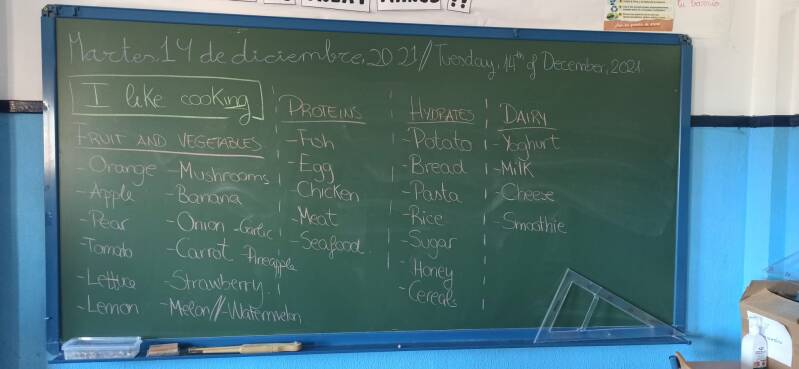 Martes, 14 de diciembre, 2021 // Tuesday, 14th of December, 2021.
I like cooking
FRUIT AND VEGETABLES
- Orange - Mushrooms
- Apple - Banana
- Pear - Onion - Garlic
- Tomato - Carrot - Pineapple
- Lettuce - Strawberry.
- Lemon - Melon // - Watermelon
PROTEINS
- Fish
- Egg
- Chicken
- Meat
- Seafood.
HYDRATES
- Potato
- Bread
- Pasta
- Rice
- Sugar
- Honey
- Cereals
DAIRY
- Yoghurt
- Milk
- Cheese
- Smoothie